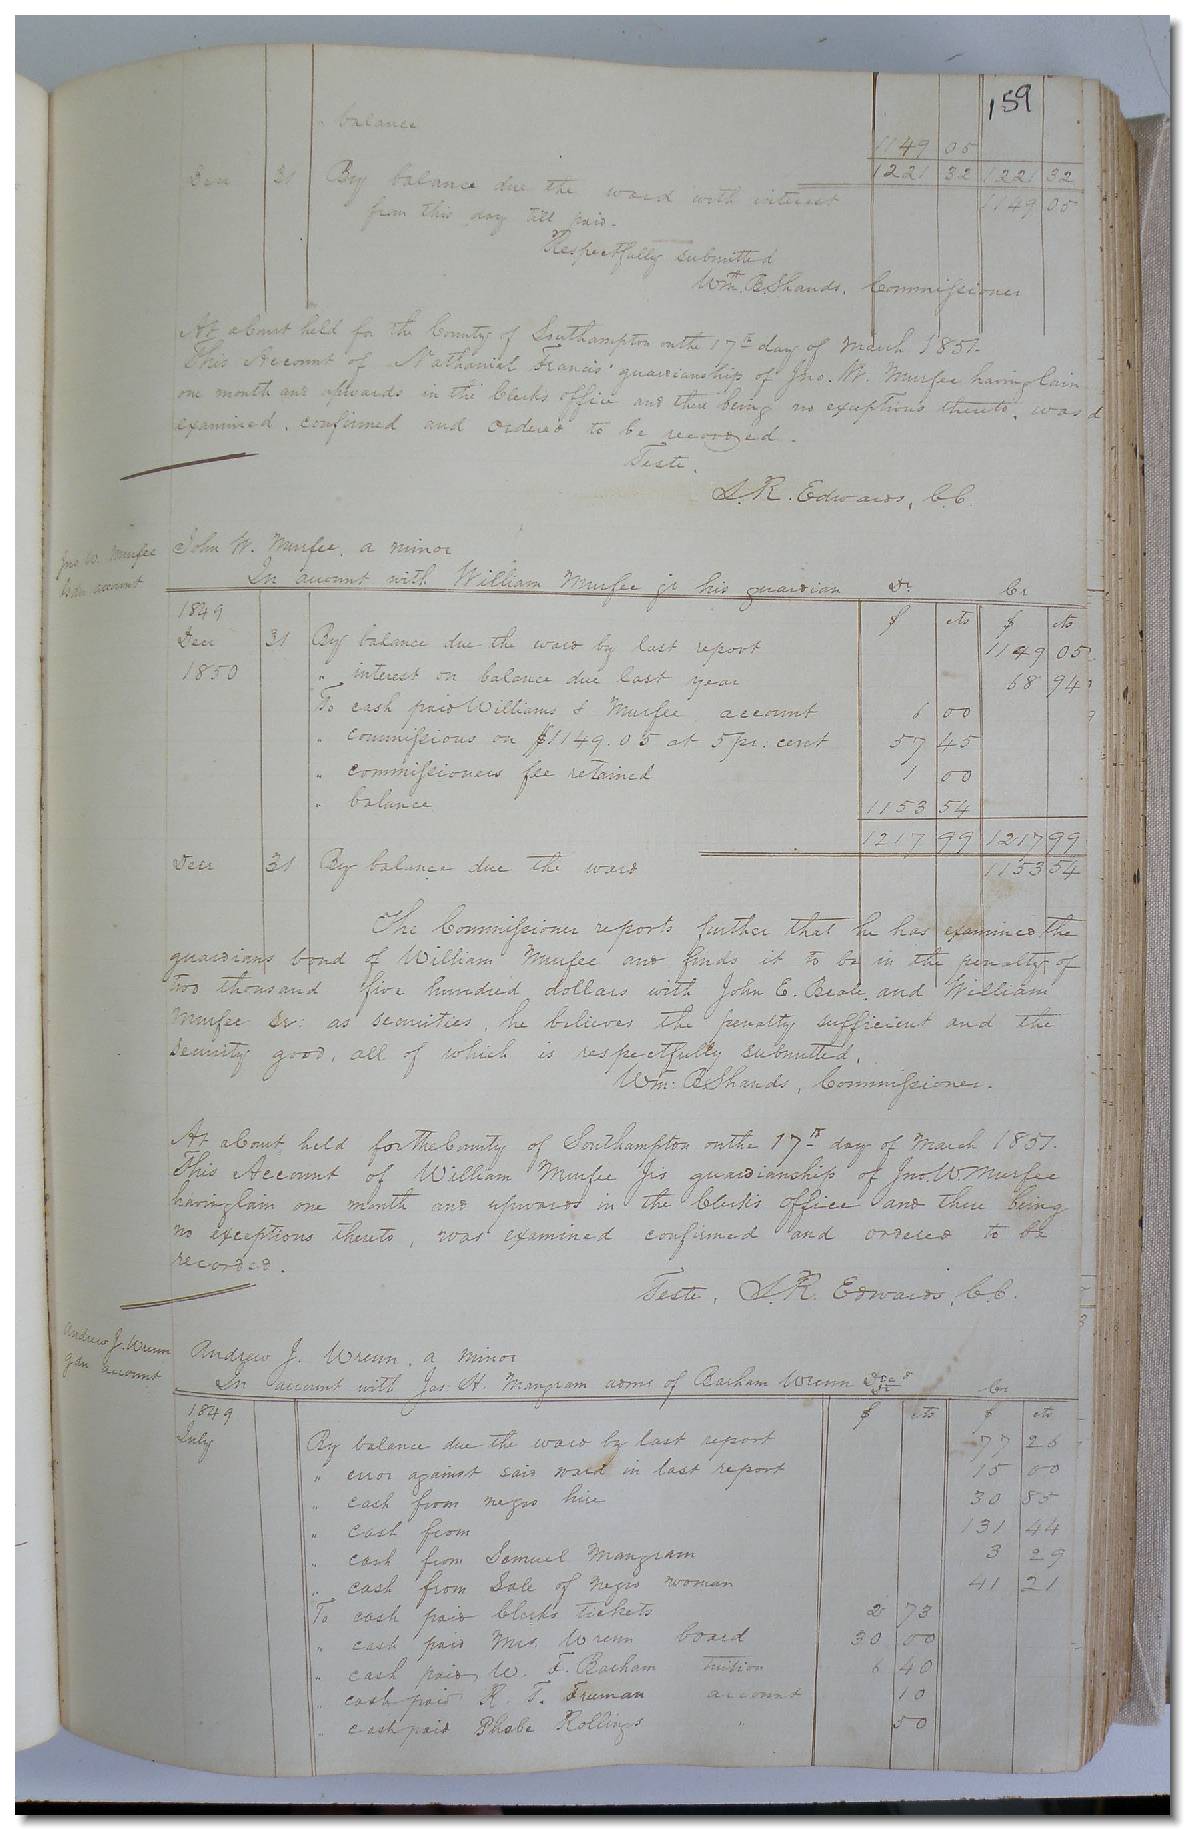 159
" balance 1149 05
1221 32 1221 32
Decr 31 By balance due the ward with interest 1149 05
from this day till paid.
Respectfully submitted
Wm. B. Shands, Commissioner
At a Court held for the County of Southampton on the 17th day of March 1851.
This Account of Nathaniel Francis' guardianship of Jno. W. Murfee having lain
one month and upwards in the Clerks office and there being no exceptions thereto, was
examined, confirmed and ordered to be recorded.
Teste.
L. R. Edwards, C.C.
Jno W. Murfee
Gdn account
John W. Murfee, a minor
In account with William Murfee jr his guardian Dr. Cr
1849 $ cts $ cts
Decr 31 By balance due the ward by last report 1149 05
1850 " interest on balance due last year 68 94
To cash paid Williams & Murfee account 6 00
" commissions on $1149.05 at 5 pr. cent 57 45
" commissioners fee retained 1 00
" balance 1153 54
1217 99 1217 99
Decr 31 By balance due the ward 1153 54
The Commissioner reports further that he has examined the
guardians bond of William Murfee and finds it to be in the penalty of
two thousand five hundred dollars with John E. Beale and William
Murfee Sr: as securities, he believes the penalty sufficient and the
security good, all of which is respectfully submitted.
Wm: B. Shands, Commissioner.
At a Court held for the County of Southampton on the 17th day of March 1851.
This Account of William Murfee Jrs guardianship of Jno. W Murfee
having lain one month and upwards in the Clerk's office and there being
no exceptions thereto, was examined confirmed and ordered to be
recorded.
Teste, L. R. Edwards, C.C.
Andrew J. Wrenn
gdn account
Andrew J. Wrenn, a minor
In account with Jas. H. Mangram admr of Barham Wrenn Dec'd Dr Cr
1849 $ cts $ cts
July By balance due the ward by last report 77 26
" error against said ward in last report 15 00
" cash from negro hire 30 85
" cash from 131 44
" cash from Lemuel Mangram 3 29
" cash from Sale of negro woman 41 21
To cash paid Clerks tickets 2 73
" cash paid Mrs. Wrenn board 30 00
" cash paid W. F. Barham tuition 6 40
" cash paid R. T. Freeman account 10
" cash paid Phebe Rollings " 50